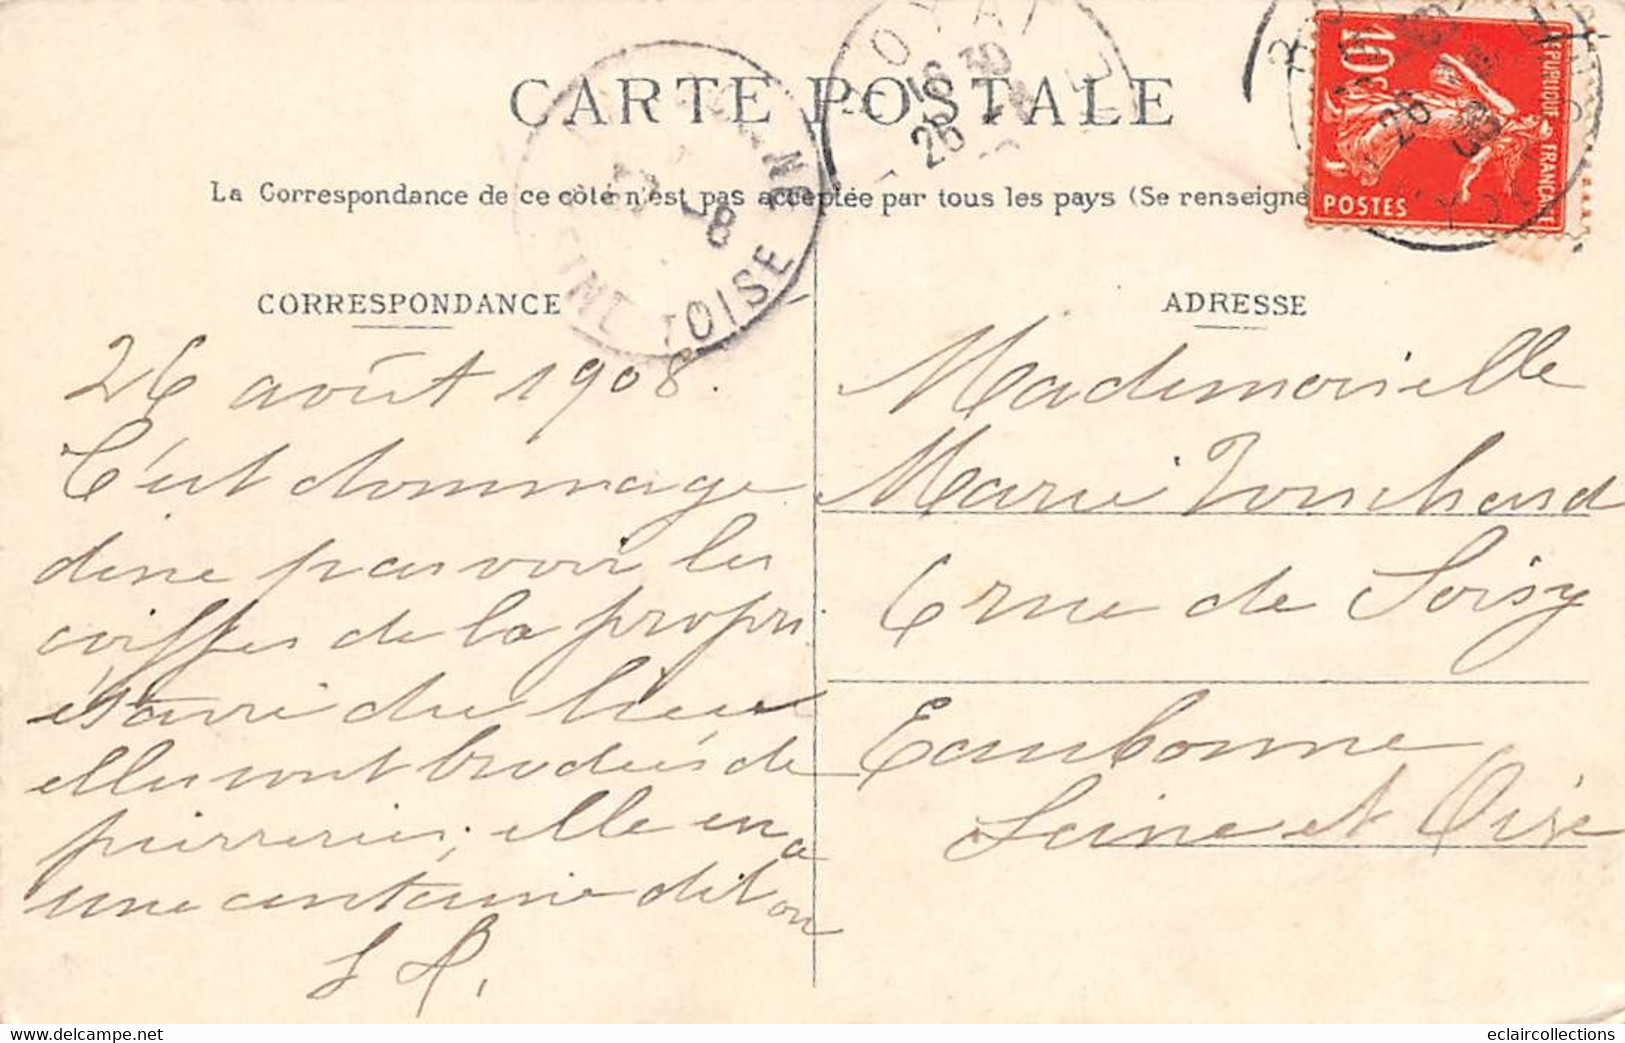 CARTE POSTALE
La Correspondance de ce côté n'est pas acceptée par tous les pays (Se renseigne
CORRESPONDANCE
ADRESSE
10c
REPUBLIQUE FRANÇAISE
POSTES
16 30
26
26
-8
SEINE ET OISE
26 août 1908.
C'est dommage
de ne pas voir les
coiffes de la propri
étaire du lieu
elles sont brodées de
pierreries; elle en a
une centaine dit on
Mademoiselle
Marie Touchard
6 rue de Soisy
Eaubonne
Seine et Oise
www.delcampe.net
eclaircollections